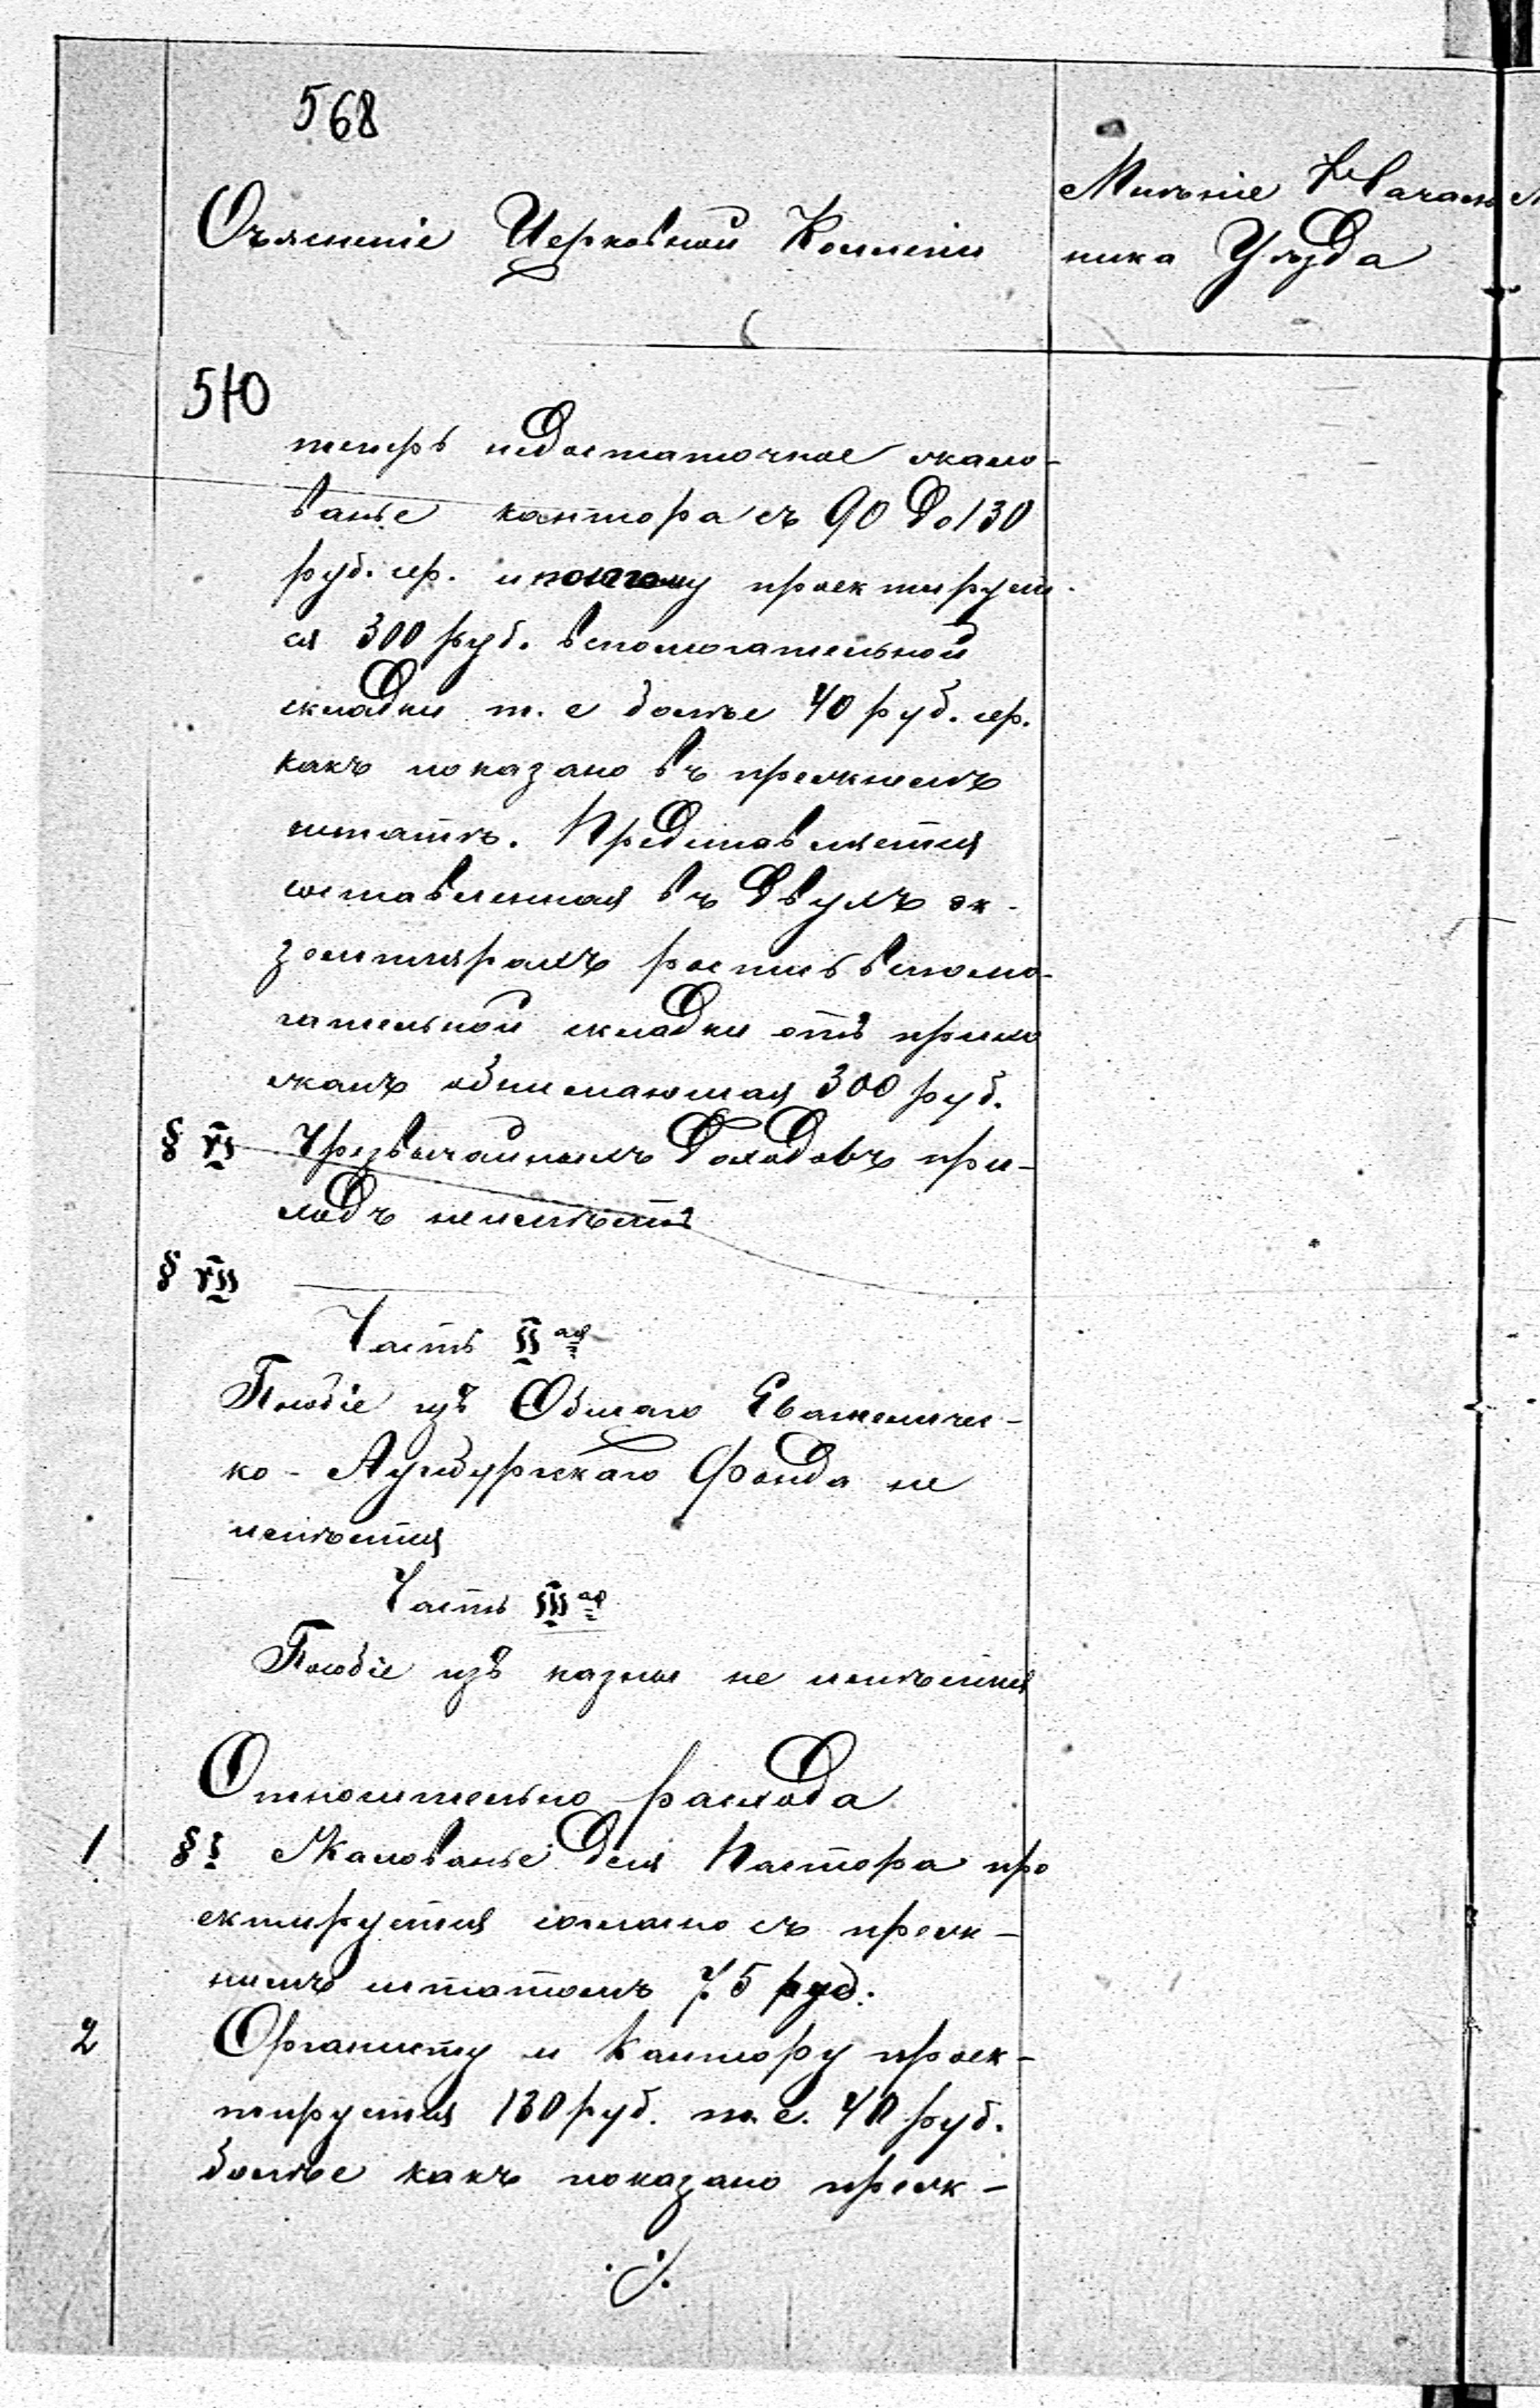 568
Оъясненіе Церковной Коллегіи
Мнѣніе Начальника Уѣзда
510
теперь недостаточное жало-
ванье кантора съ 90 до 130
руб. сер. и поэтому проектирует-
ся 300 руб. вспомогательной
складки т. е болѣе 40 руб. сер.
какъ показано въ прежнемъ
штатѣ. Представляется
составленная въ двухъ эк-
земплярахъ роспись вспомо-
гательной складки отъ прихо
жанъ обнимающая 300 руб.
§ VI Чрезвычайныхъ доходовъ при-
ходъ неимѣетъ
§ VII
Часть II ая
Пособіе изъ Общаго Евангеличес-
ко-Аугсбургскаго Фонда не
имѣется
Часть III ая
Пособіе изъ казны не имѣется
Относительно расхода
1 § I Жалованье для Пастора про
ектируется согласно съ преж-
нимъ штатомъ 75 руб.
2 Органисту и Кантору проек-
тируется 130 руб. т. е. 40 руб.
болѣе какъ показано преж-
./.